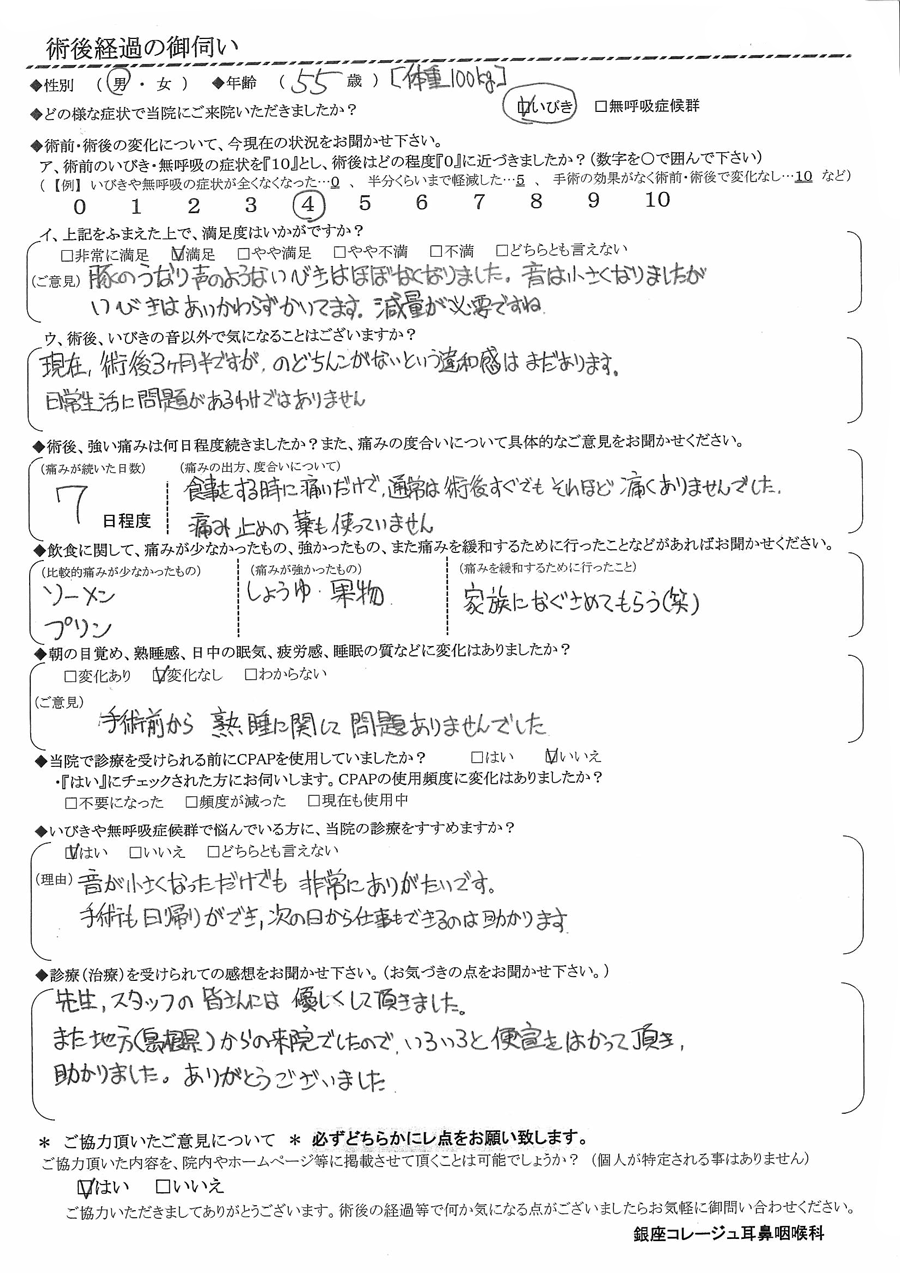 術後経過の御伺い
◆性別 （ 男 ・ 女 ） ◆年齢 （ 55 歳 ） [体重100kg]
◆どの様な症状で当院にご来院いただきましたか？ ☑いびき □無呼吸症候群
◆術前・術後の変化について、今現在の状況をお聞かせ下さい。
ア、術前のいびき・無呼吸の症状を『10』とし、術後はどの程度『0』に近づきましたか？（数字を○で囲んで下さい）
（【例】 いびきや無呼吸の症状が全くなくなった…0 、 半分くらいまで軽減した…5 、 手術の効果がなく術前・術後で変化なし…10 など）
0 1 2 3 4 5 6 7 8 9 10
イ、上記をふまえた上で、満足度はいかがですか？
□非常に満足 ☑満足 □やや満足 □やや不満 □不満 □どちらとも言えない
（ご意見） 豚のうなり声のようないびきはほぼなくなりました。音は小さくなりましたが
いびきはあいかわらずかいてます。減量が必要ですね
ウ、術後、いびきの音以外で気になることはございますか？
現在、術後3ヶ月半ですが、のどちんこがないという違和感はまだあります。
日常生活に問題があるわけではありません
◆術後、強い痛みは何日程度続きましたか？また、痛みの度合いについて具体的なご意見をお聞かせください。
（痛みが続いた日数） （痛みの出方、度合いについて）
7 日程度 食事をする時に痛いだけで、通常は術後すぐでもそれほど痛くありませんでした。
痛み止めの薬も使っていません
◆飲食に関して、痛みが少なかったもの、強かったもの、また痛みを緩和するために行ったことなどがあればお聞かせください。
（比較的痛みが少なかったもの） （痛みが強かったもの） （痛みを緩和するために行ったこと）
ソーメン しょうゆ・果物 家族になぐさめてもらう(笑)
プリン
◆朝の目覚め、熟睡感、日中の眠気、疲労感、睡眠の質などに変化はありましたか？
□変化あり ☑変化なし □わからない
（ご意見）
手術前から 熟睡に関して 問題ありませんでした
◆当院で診療を受けられる前にCPAPを使用していましたか？ □はい ☑いいえ
・『はい』にチェックされた方にお伺いします。CPAPの使用頻度に変化はありましたか？
□不要になった □頻度が減った □現在も使用中
◆いびきや無呼吸症候群で悩んでいる方に、当院の診療をすすめますか？
☑はい □いいえ □どちらとも言えない
（理由） 音が小さくなっただけでも 非常にありがたいです。
手術も日帰りができ、次の日から仕事もできるのは助かります
◆診療（治療）を受けられての感想をお聞かせ下さい。（お気づきの点をお聞かせ下さい。）
先生、スタッフの皆さんには 優しくして頂きました。
また地方(島根県)からの来院でしたので、いろいろと便宜をはかって頂き、
助かりました。ありがとうございました
＊ ご協力頂いたご意見について ＊ 必ずどちらかにレ点をお願い致します。
ご協力頂いた内容を、院内やホームページ等に掲載させて頂くことは可能でしょうか？ （個人が特定される事はありません）
☑はい □いいえ
ご協力いただきましてありがとうございます。術後の経過等で何か気になる点がございましたらお気軽に御問い合わせください。
銀座コレージュ耳鼻咽喉科